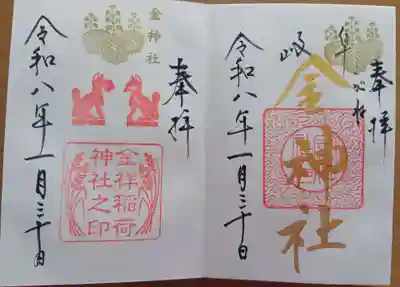 奉拝
岐阜
金神社
令和八年一月三十日
奉拝
金神社
金祥稲荷
神社之印
令和八年一月三十日